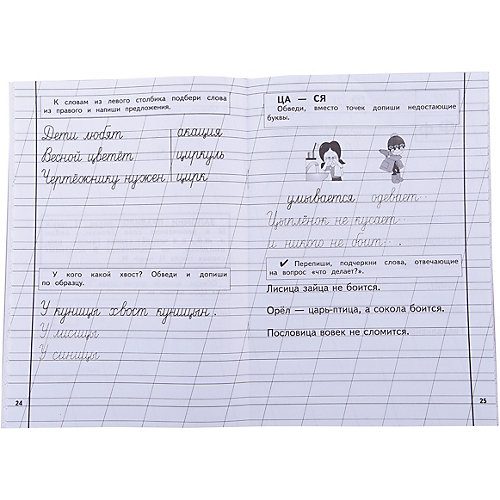 К словам из левого столбика подбери слова
из правого и напиши предложения.
Дети любят акация
Весной цветёт циркуль
Чертёжнику нужен цирк
У кого какой хвост? Обведи и допиши
по образцу.
У куницы хвост куницын.
У лисицы
У синицы
24
ЦА — СЯ
Обведи, вместо точек допиши недостающие
буквы.
умывается одевает..
Цыплёнок не кусает..
и никто не боит...
✔ Перепиши, подчеркни слова, отвечающие
на вопрос «что делает?».
Лисица зайца не боится.
Орёл — царь-птица, а сокола боится.
Пословица вовек не сломится.
25